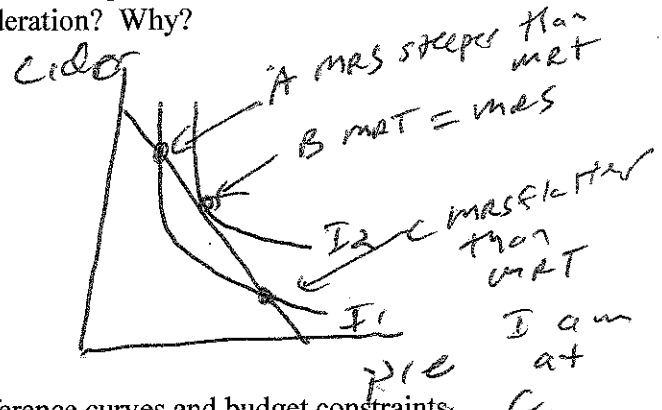 leration? Why?
Cider
A MRS steeper than
MRT
B MRT = MRS
I2
C MRS flatter
than
MRT
I1
I am
at
pie
ference curves and budget constraints